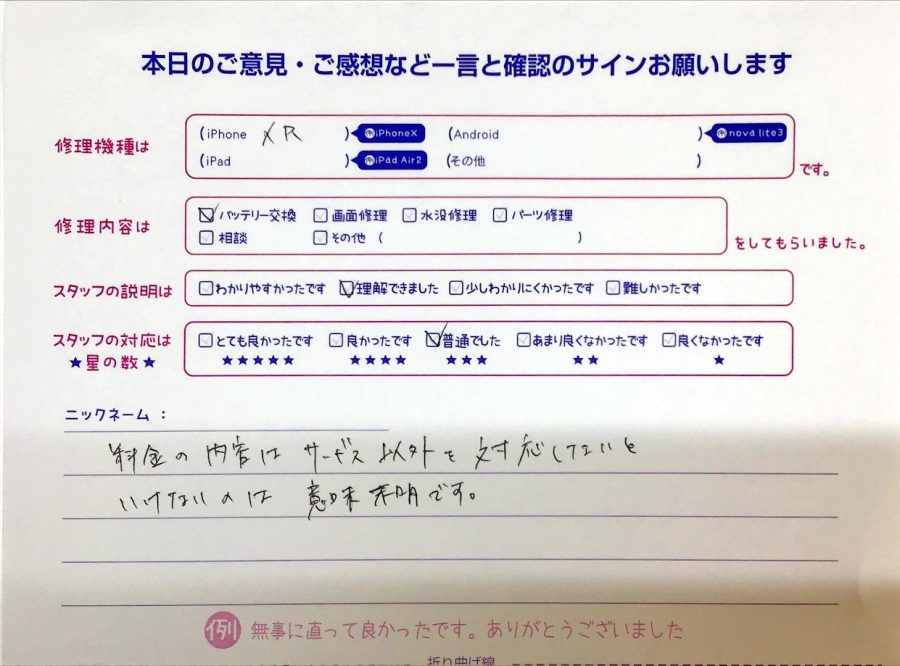 本日のご意見・ご感想など一言と確認のサインお願いします
修理機種は
(iPhone XR ) iPhoneX (Android ) nova lite3
(iPad ) iPad Air2 (その他 )
です。
修理内容は
バッテリー交換 画面修理 水没修理 パーツ修理
相談 その他 ( )
をしてもらいました。
スタッフの説明は
わかりやすかったです 理解できました 少しわかりにくかったです 難しかったです
スタッフの対応は
★星の数★
とても良かったです 良かったです 普通でした あまり良くなかったです 良くなかったです
★★★★★ ★★★★ ★★★ ★★ ★
ニックネーム :
料金の内容はサービス以外を対応しないと
いけないのは意味不明です。
例 無事に直って良かったです。ありがとうございました
折り曲げ線